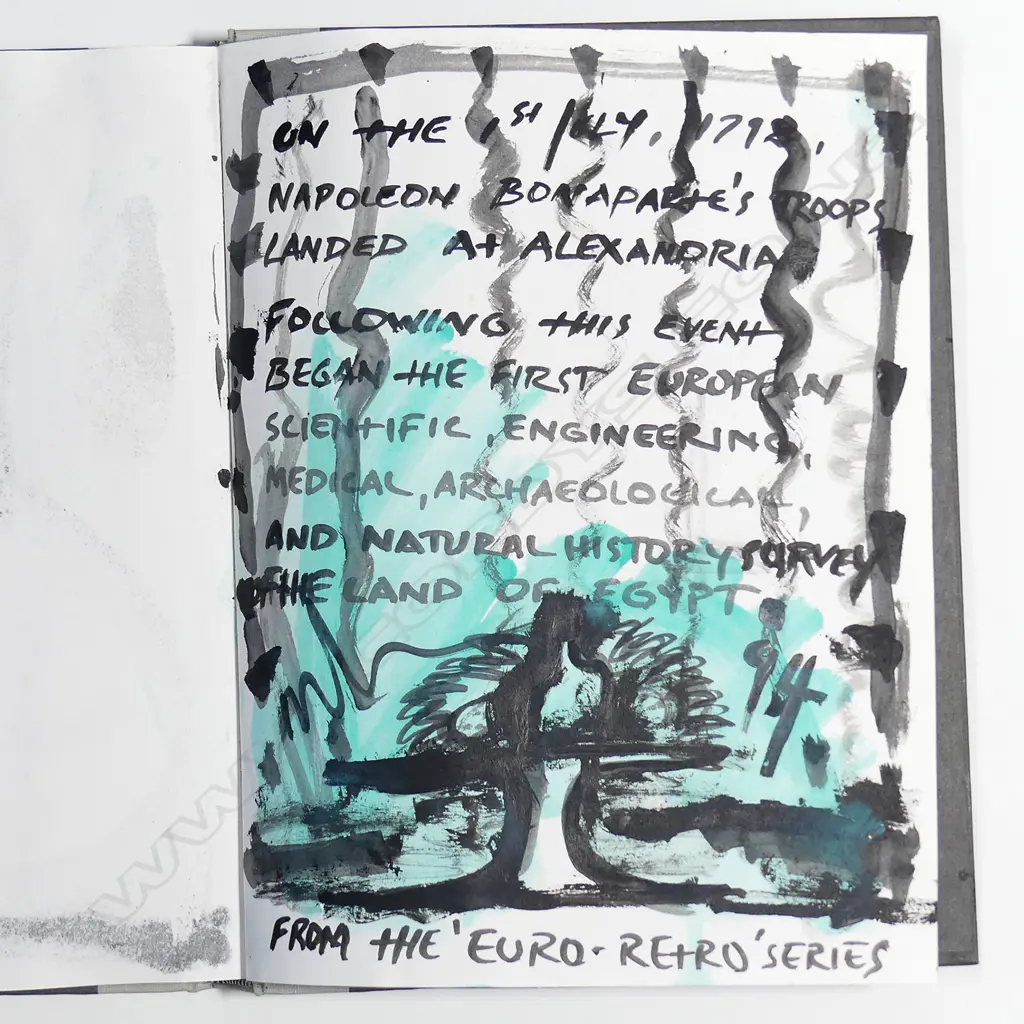 ON THE 1ST JULY, 1798,
NAPOLEON BONAPARTE'S TROOPS
LANDED AT ALEXANDRIA
FOLLOWING THIS EVENT
BEGAN THE FIRST EUROPEAN
SCIENTIFIC, ENGINEERING,
MEDICAL, ARCHAEOLOGICAL,
AND NATURAL HISTORY SURVEY
OF THE LAND OF EGYPT
94
FROM THE 'EURO-RETRO' SERIES